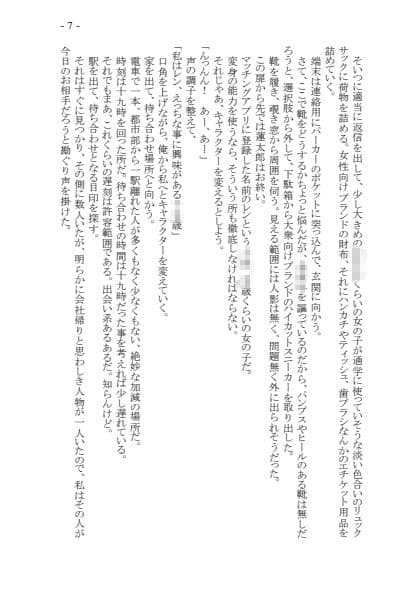 - 7 -
そいつに適当に返信を出して、少し大きめのくらいの女の子が通学に使っていそうな淡い色合いのリュック
サックに荷物を詰める。女性向けブランドの財布、それにハンカチやティッシュ、歯ブラシなんかのエチケット用品を
詰めていく。
端末は連絡用にパーカーのポケットに突っ込んで、玄関に向かう。
さて、ここで靴をどうするかちょっと悩んだが、を謳っているのだから、パンプスやヒールのある靴は無しだ
ろうと、選択肢から外して、下駄箱から大衆向けブランドのハイカットスニーカーを取り出した。
靴を履き、覗き窓から周囲を伺う。見える範囲には人影は無く、問題無く外に出られそうだった。
この扉から先では蓮太郎はお終い。
マッチングアプリに登録した名前のレンという歳くらいの女の子だ。
変身の能力を使うなら、そういう所も徹底しなければならない。
それじゃあ、キャラクターを変えるとしよう。
「んっんん！　あー、あー」
声の調子を整えて、
「私はレン、えっちな事に興味がある歳」
口角を上げながら、俺から私へとキャラクターを変えていく。
家を出て、待ち合わせ場所へと向かう。
電車で一本、都市部から一駅離れた人が多くもなく少なくもない、絶妙な加減の場所だ。
時刻は十九時を回った所だ。待ち合わせの時間は十九時だった事を考えれば少し遅れている。
それでもまあ、これくらいの遅刻は許容範囲である。出会い系あるあるだ。知らんけど。
駅を出て、待ち合わせとなる目印を探す。
それはすぐに見つかり、その側に数人いたが、明らかに会社帰りと思わしき人物が一人いたので、私はその人が
今日のお相手だろうと勘ぐり声を掛けた。